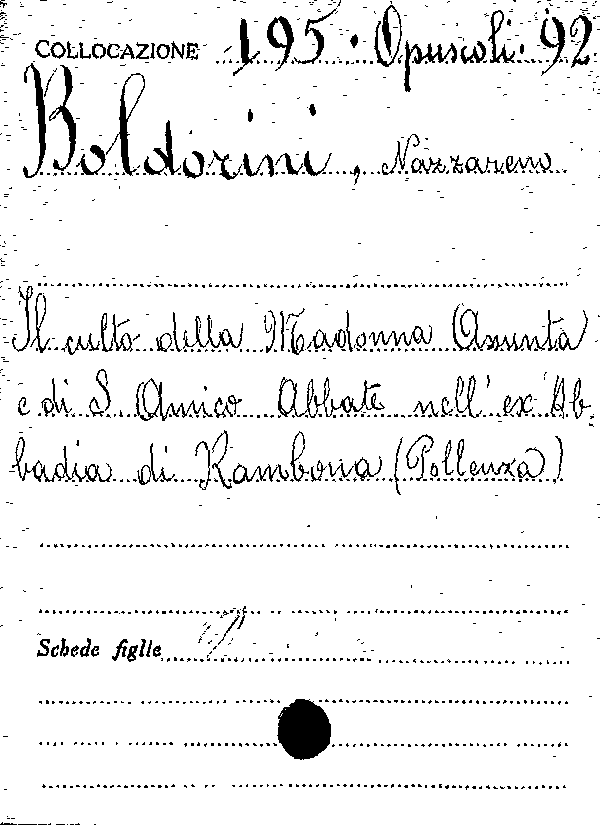 COLLOCAZIONE 195. Opuscoli. 92
Boldorini, Nazzareno
Il culto della Madonna Assunta
e di S. Amico Abbate nell'ex Ab-
badia di Rambona (Pollenza)
Schede figlie